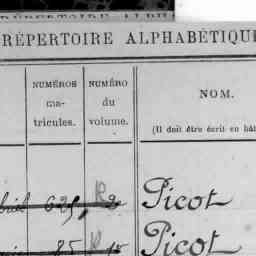 RÉPERTOIRE ALPHABÉTIQUE
NUMÉROS
ma-
tricules.
NUMÉRO
du
volume.
NOM.
(Il doit être écrit en bât
625, R 2 Picot
85 R Picot